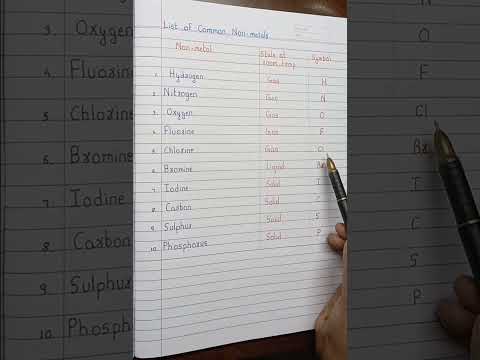 List of Common Non-metals
Non-metal State at room temp Symbol
1. Hydrogen Gas H
2. Nitrogen Gas N
3. Oxygen Gas O
4. Fluorine Gas F
5. Chlorine Gas Cl
6. Bromine Liquid Br
7. Iodine Solid I
8. Carbon Solid C
9. Sulphur Solid S
10. Phosphorus Solid P
3. Oxygen
4. Fluorine
5. Chlorine
6. Bromine
7. Iodine
8. Carbon
9. Sulphur
10. Phosphorus
N
O
F
Cl
Br
I
C
S
P